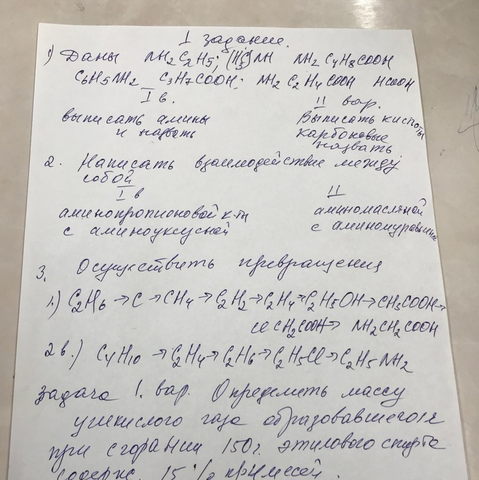 I задание.
1) Даны NH2C2H5; (CH3)NH NH2C4H8COOH
C6H5NH2 C3H7COOH; NH2C2H4COOH HCOOH
I в. II вар.
выписать амины Выписать кислоты
и назвать карбоновые
назвать
2. Написать взаимодействие между
собой
I в II
аминопропионовой к-ты аминомасляной
с аминоуксусной с аминомуравьиной
3. Осуществить превращения
1.) C2H6 → C → CH4 → C2H2 → C2H4 → C2H5OH → CH3COOH →
ClCH2COOH → NH2CH2COOH
2в.) C4H10 → C2H4 → C2H6 → C2H5Cl → C2H5NH2
Задача 1. вар. Определить массу
углекислого газа образовавшегося
при сгорании 150г. этилового спирта
содерж. 15% примесей.